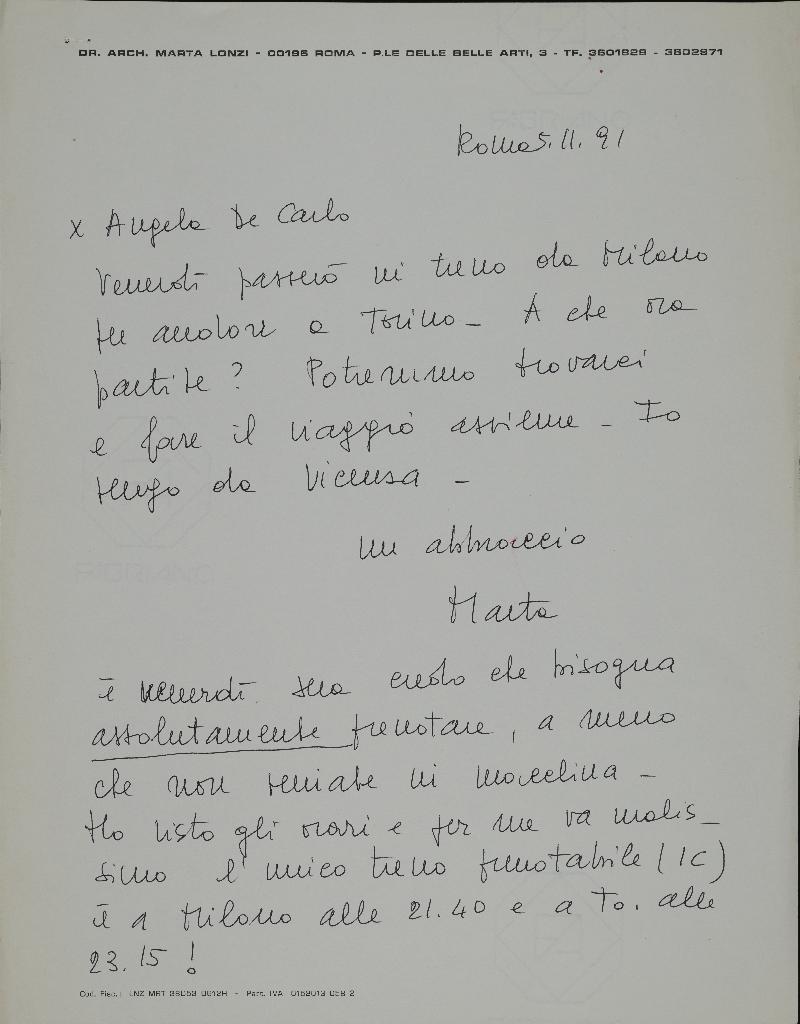 DR. ARCH. MARTA LONZI - 00196 ROMA - P.LE DELLE BELLE ARTI, 3 - TF. 3601828 - 3602971
Roma 5.11.91
x Angela De Carlo
Venerdì passerò in treno da Milano
per andare a Torino - A che ora
partite? Potremmo trovarci
e fare il viaggio assieme - Io
vengo da Vicenza -
un abbraccio
Marta
è venerdì sera credo che bisogna
assolutamente prenotare, a meno
che non veniate in macchina -
Ho visto gli orari e per me va malis-
simo l'unico treno prenotabile (IC)
è a Milano alle 21.40 e a To. alle
23.15!
Cod. Fisc.: LNZ MRT 38D53 D612H - Part. IVA